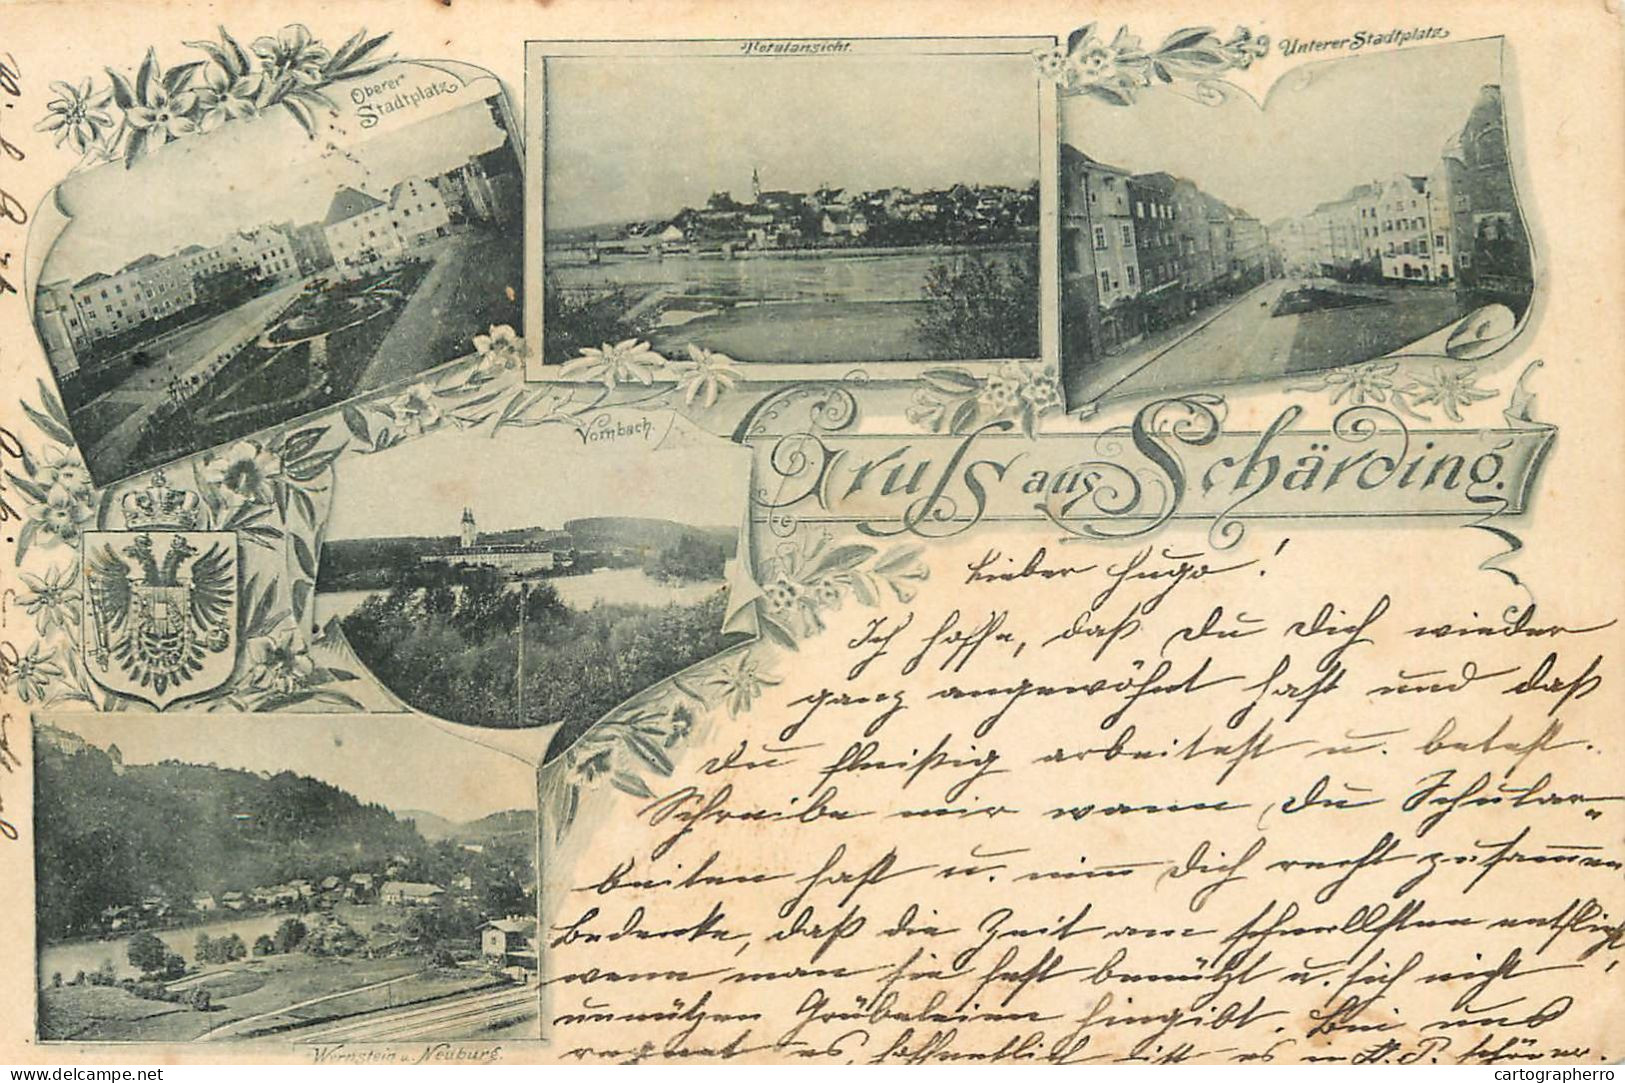 Oberer
Stadtplatz
Totalansicht.
Unterer Stadtplatz
Vornbach.
Gruss aus Schärding.
Wernstein u. Neuburg.
Lieber Hugo!
Ich hoffe, daß Du Dich wieder
ganz angewöhnt hast und daß
Du fleißig arbeitest u. betest.
Schreibe mir wann Du Schular-
beiten hast u. nimm Dich recht zusammen
Bedenke, daß die Zeit am schnellsten entflieht,
wenn man sie fest benützt u. sich nicht
unnützen Grübeleien hingibt. Bei uns
regnet es, hoffentlich ist es in St. P. schöner.
delcampe.net
cartographerro